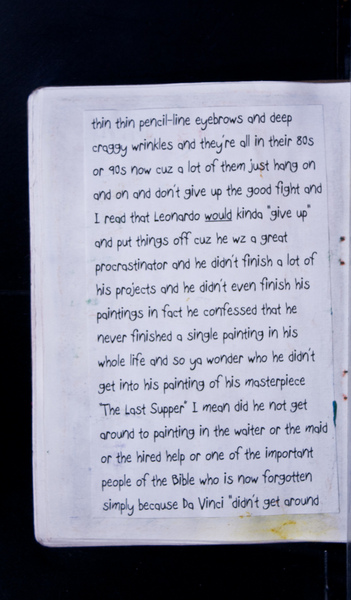 thin thin pencil-line eyebrows and deep
craggy wrinkles and they're all in their 80s
or 90s now cuz a lot of them just hang on
and on and don't give up the good fight and
I read that Leonardo would kinda "give up"
and put things off cuz he wz a great
procrastinator and he didn't finish a lot of
his projects and he didn't even finish his
paintings in fact he confessed that he
never finished a single painting in his
whole life and so ya wonder who he didn't
get into his painting of his masterpiece
"The Last Supper" I mean did he not get
around to painting in the waiter or the maid
or the hired help or one of the important
people of the Bible who is now forgotten
simply because Da Vinci "didn't get around